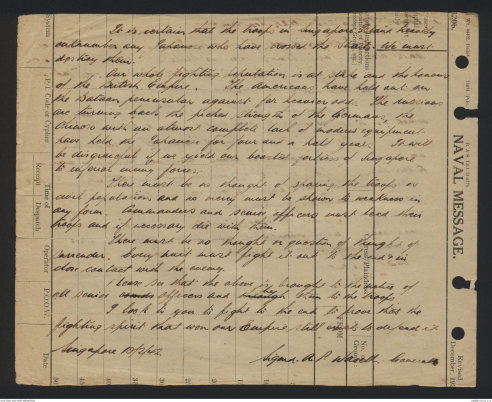 It is certain that the troops in Singapore Island heavily
outnumber any Japanese who have crossed the Straits. We must
destroy them.
Our whole fighting reputation is at stake and the honour
of the British Empire. The Americans have held out on
the Bataan peninsular against far heavier odds. The Russians
are turning back the picked strength of the Germans, the
Chinese with an almost complete lack of modern equipment
have held the Japanese for four and a half years. It will
be disgraceful if we yield our boasted fortress of Singapore
to inferior enemy forces.
There must be no thought of sparing the troops or
civil population and no mercy must be shown to weakness in
any form. Commanders and senior officers must lead their
troops and if necessary die with them.
There must be no thought or question of
surrender. Every unit must fight it out to the end & in
close contact with the enemy.
Please see that the above is brought to the notice of
all senior officers and by them to the troops.
I look to you to fight to the end to prove that the
fighting spirit that won our Empire still exists to defend it
Singapore
Signed. A P Wavell. General
NAVAL MESSAGE.
Revised
December,
System
P/L Code or Cypher
Time of
Receipt
Despatch
Operator
P.O.O.W.
Date